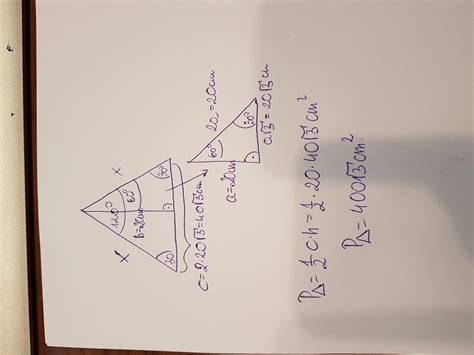 x
x
120°
60°
h=20cm
30
30°
c=2·20√3=40√3cm
60°
2a=20cm
30°
a=20cm
a√3=20√3cm
P△=½c·h=½·20·40√3cm²
P△=400√3cm²